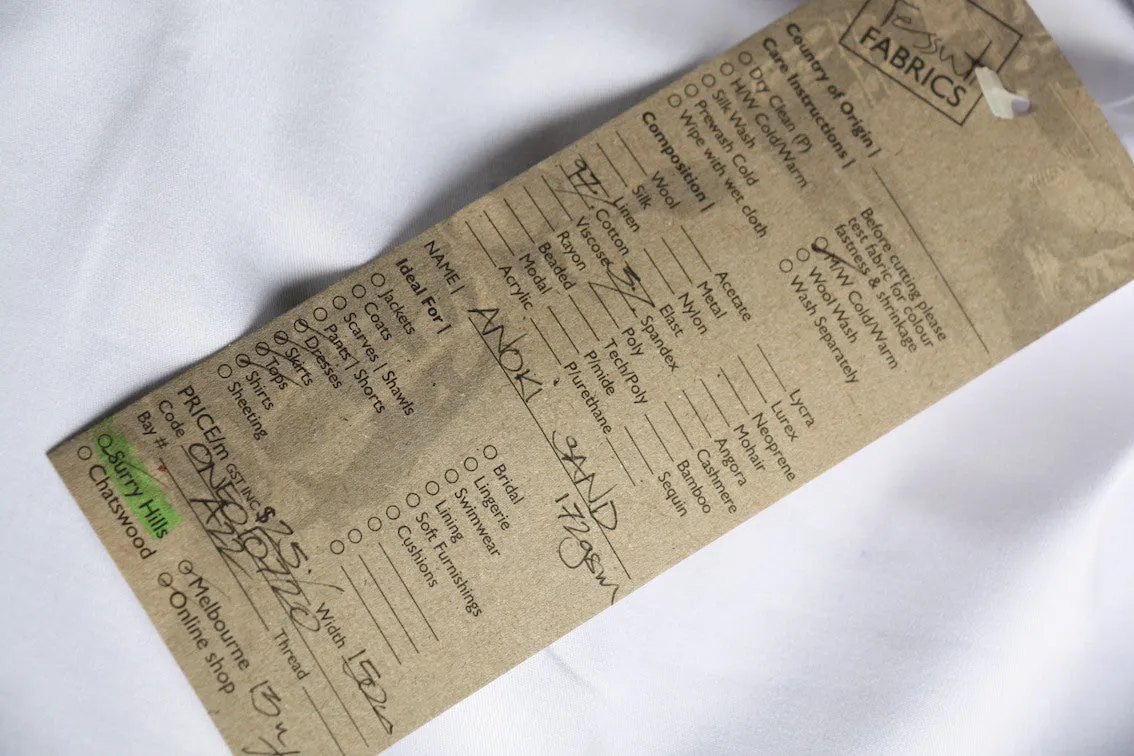 Tessuti
FABRICS
Country of Origin |
Care Instructions |
Dry Clean (P)
H/W Cold/Warm
Silk Wash
Prewash Cold
Wipe with wet cloth
Before cutting please
test fabric for colour
fastness & shrinkage
H/W Cold/Warm
Wool Wash
Wash Separately
Composition |
Wool
Silk
Linen
97% Cotton
Viscose
Rayon
Beaded
Modal
Acrylic
Acetate
Metal
Nylon
Elast
3% Spandex
Poly
Tech/Poly
P/mide
P/urethane
Lycra
Lurex
Neoprene
Mohair
Angora
Cashmere
Bamboo
Sequin
NAME | ANOKI SAND
172gsm
Ideal For |
Jackets
Coats
Scarves | Shawls
Pants | Shorts
Dresses
Skirts
Tops
Shirts
Sheeting
Bridal
Lingerie
Swimwear
Lining
Soft Furnishings
Cushions
PRICE/m GST INC $25. Width 150cm
Code
Bay # A22 Thread
Surry Hills
Chatswood
Melbourne
Online shop